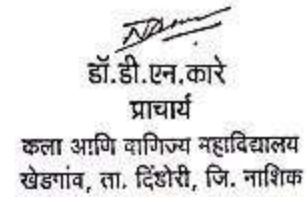 डॉ.डी.एन.कारे
प्राचार्य
कला आणि वाणिज्य महाविद्यालय
खेडगांव, ता. दिंडोरी, जि. नाशिक